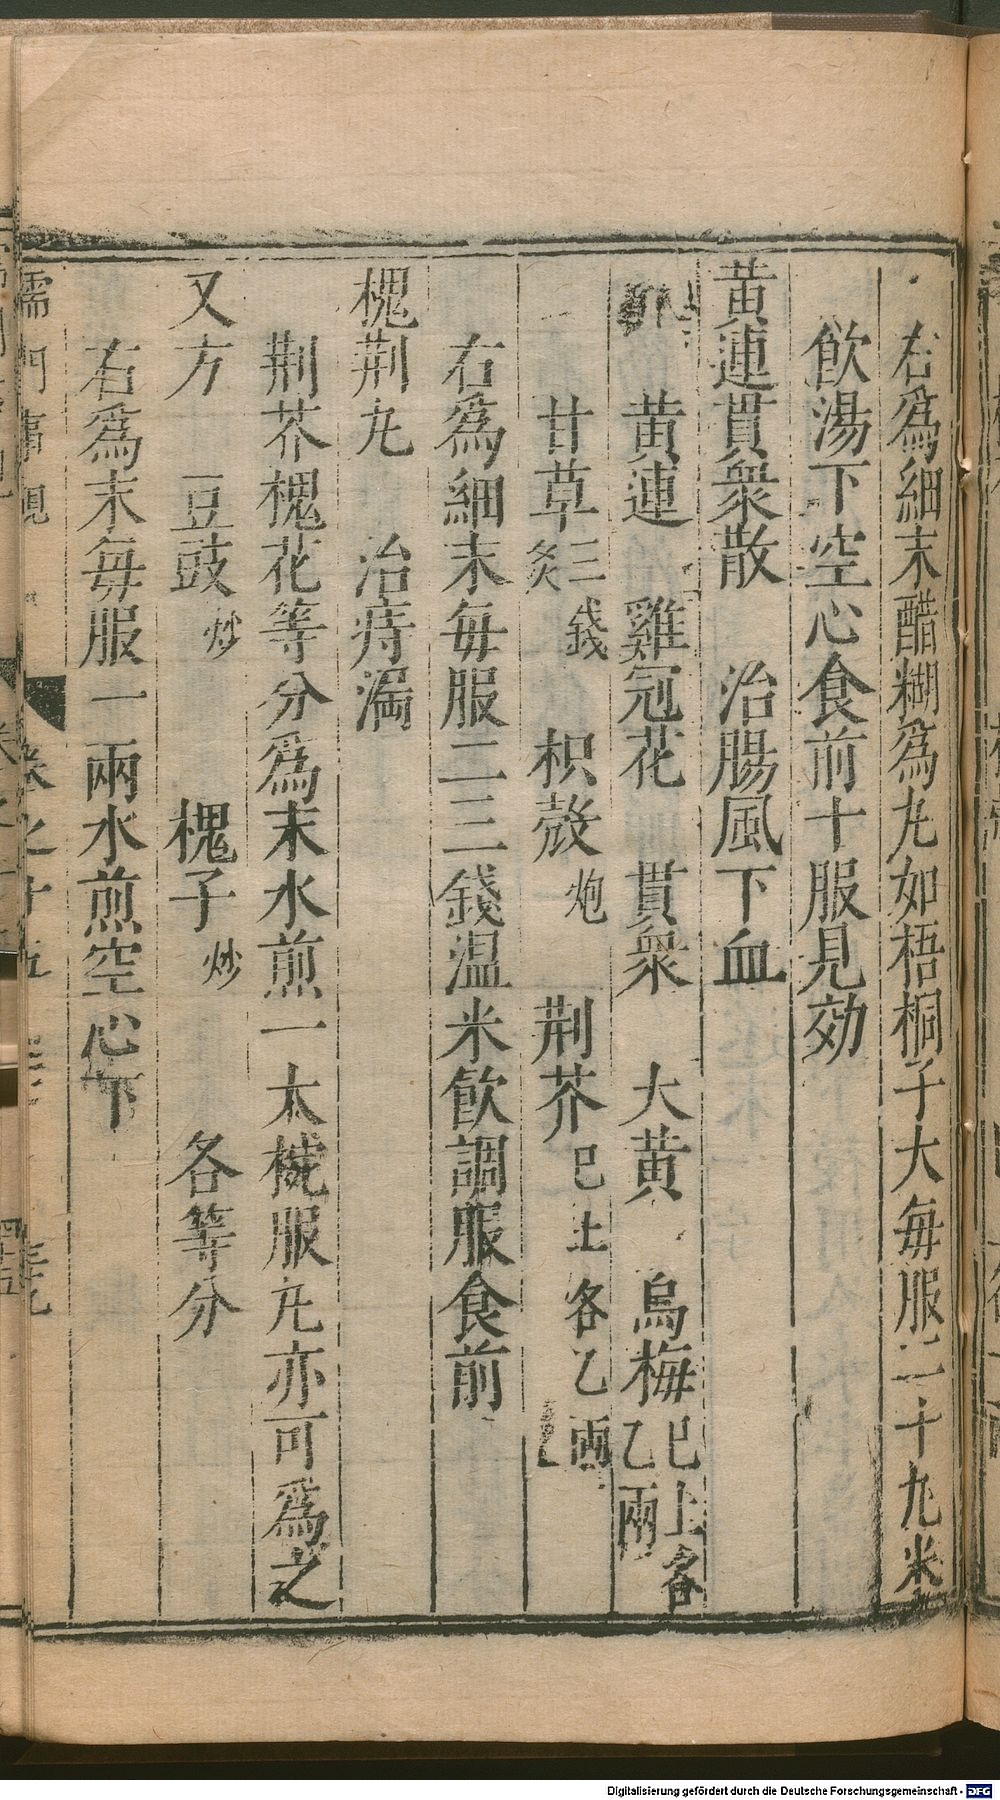 右爲細末醋糊爲丸如梧桐子大每服二十丸米
飲湯下空心食前十服見効
黃連貫衆散　治腸風下血
黃連　雞冠花　貫衆　大黃　烏梅已上各乙兩
甘草三錢炙　枳殼炮　荆芥已上各乙兩
右爲細末每服二三錢温米飲調服食前
槐荆丸　治痔漏
荆芥槐花等分爲末水煎一大椀服丸亦可爲之
又方　豆豉炒　槐子炒　各等分
右爲末每服一兩水煎空心下
儒門事親　卷之十五
Digitalisierung gefördert durch die Deutsche Forschungsgemeinschaft - DFG